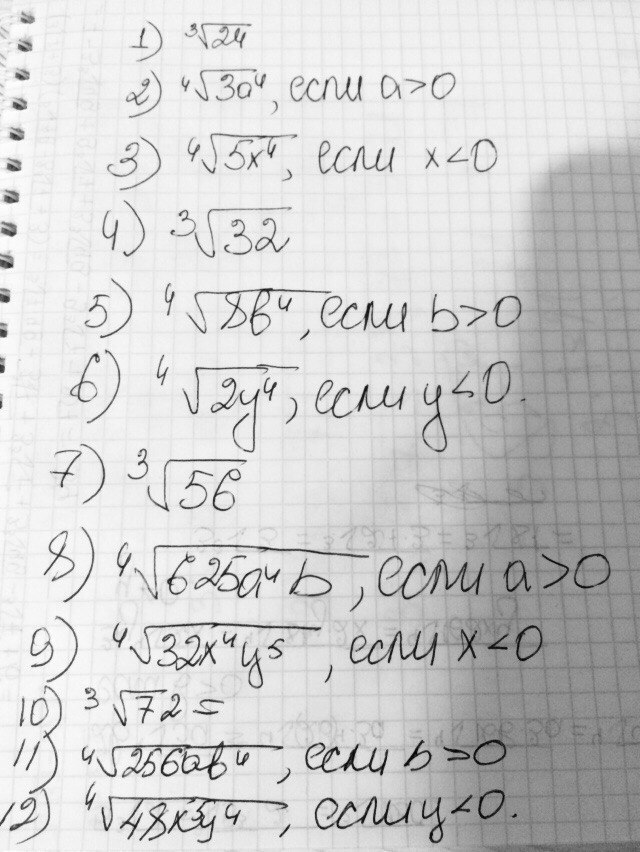 1) ³√24
2) ⁴√3a⁴, если a>0
3) ⁴√5x⁴, если x<0
4) ³√32
5) ⁴√8b⁴, если b>0
6) ⁴√2y⁴, если y<0.
7) ³√56
8) ⁴√625a⁴b, если a>0
9) ⁴√32x⁴y⁵, если x<0
10) ³√72=
11) ⁴√256ab⁴, если b>0
12) ⁴√48x³y⁴, если y<0.